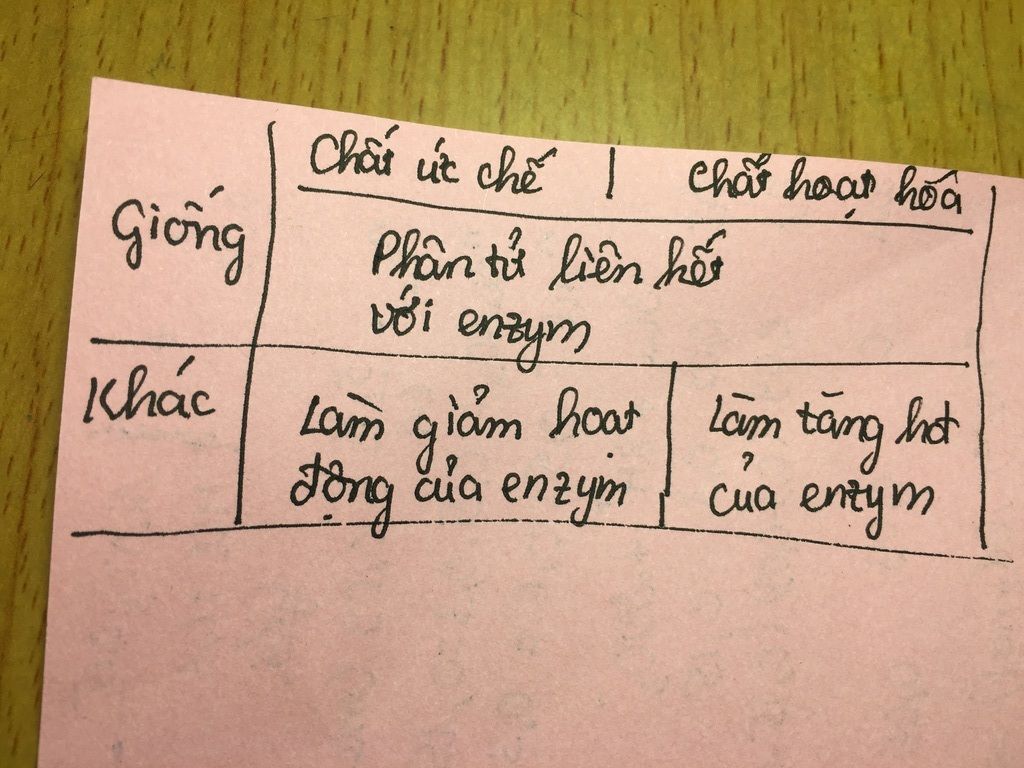 Chất ức chế | Chất hoạt hoá
Giống
Phân tử liên kết
với enzym
Khác
Làm giảm hoạt
động của enzym
Làm tăng hđ
của enzym